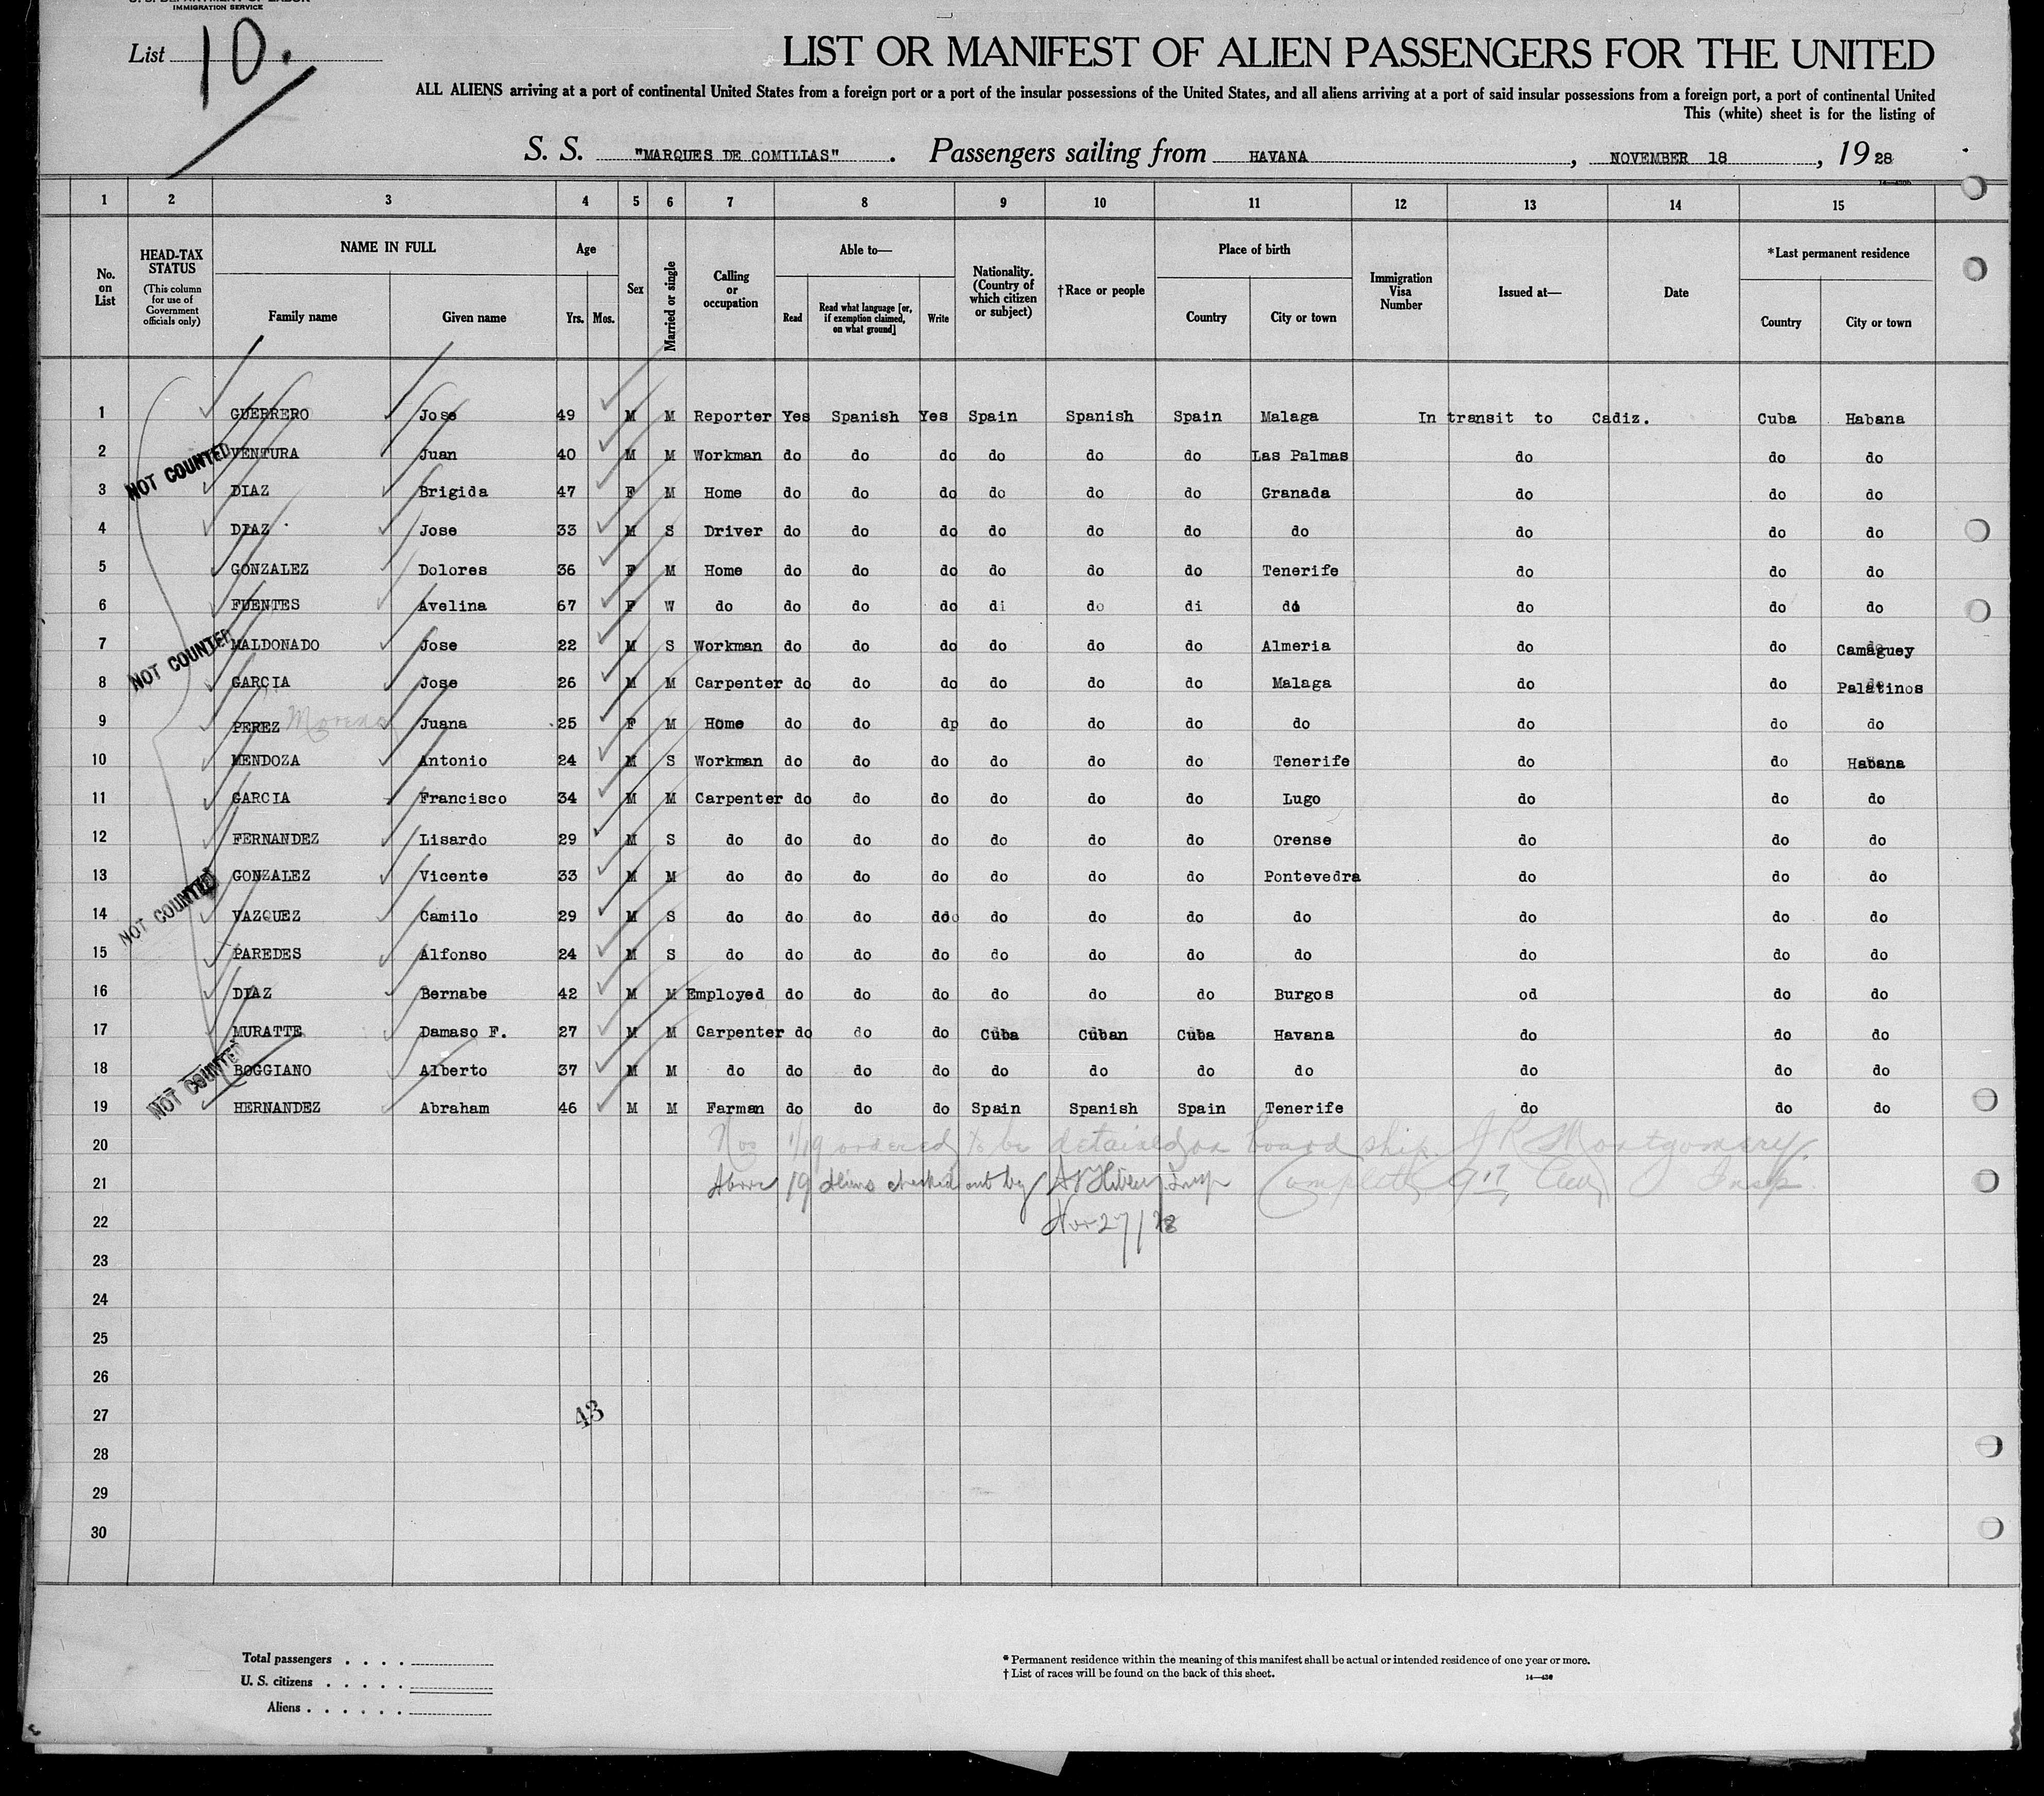 U. S. DEPARTMENT OF LABOR
IMMIGRATION SERVICE
List 10.
LIST OR MANIFEST OF ALIEN PASSENGERS FOR THE UNITED
ALL ALIENS arriving at a port of continental United States from a foreign port or a port of the insular possessions of the United States, and all aliens arriving at a port of said insular possessions from a foreign port, a port of continental United
This (white) sheet is for the listing of
S. S. "MARQUES DE COMILLAS" . Passengers sailing from HAVANA , NOVEMBER 18 , 19 28
1 2 3 4 5 6 7 8 9 10 11 12 13 14 15
No. on List
HEAD-TAX STATUS (This column for use of Government officials only)
NAME IN FULL
Family name Given name
Age
Yrs. Mos.
Sex
Married or single
Calling or occupation
Able to—
Read
Read what language [or, if exemption claimed, on what ground]
Write
Nationality. (Country of which citizen or subject)
†Race or people
Place of birth
Country City or town
Immigration Visa Number
Issued at—
Date
*Last permanent residence
Country City or town
1 GUERRERO Jose 49 M M Reporter Yes Spanish Yes Spain Spanish Spain Malaga In transit to Cadiz. Cuba Habana
2 VENTURA Juan 40 M M Workman do do do do do do Las Palmas do do do
NOT COUNTED
3 DIAZ Brigida 47 F M Home do do do do do do Granada do do do
4 DIAZ Jose 33 M S Driver do do do do do do do do do do
5 GONZALEZ Dolores 36 F M Home do do do do do do Tenerife do do do
6 FUENTES Avelina 67 F W do do do do di do di do do do do
7 MALDONADO Jose 22 M S Workman do do do do do do Almeria do do Camaguey
NOT COUNTED
8 GARCIA Jose 26 M M Carpenter do do do do do do Malaga do do Palatinos
9 PEREZ Moreno Juana 25 F M Home do do dp do do do do do do do
10 MENDOZA Antonio 24 M S Workman do do do do do do Tenerife do do Habana
11 GARCIA Francisco 34 M M Carpenter do do do do do do Lugo do do do
12 FERNANDEZ Lisardo 29 M S do do do do do do do Orense do do do
13 GONZALEZ Vicente 33 M M do do do do do do do Pontevedra do do do
NOT COUNTED
14 VAZQUEZ Camilo 29 M S do do do do do do do do do do do
15 PAREDES Alfonso 24 M S do do do do do do do do do do do
16 DIAZ Bernabe 42 M M Employed do do do do do do Burgos od do do
17 MURATTE Damaso F. 27 M M Carpenter do do do Cuba Cuban Cuba Havana do do do
18 BOGGIANO Alberto 37 M M do do do do do do do do do do do
NOT COUNTED
19 HERNANDEZ Abraham 46 M M Farman do do do Spain Spanish Spain Tenerife do do do
20 Nos 1/19 ordered to be detained on board ship. J R Montgomery.
21 Above 19 aliens checked out by Insp Insp.
22 Nov 27/28
23
24
25
26
27
43
28
29
30
Total passengers . . . .
U. S. citizens . . . . .
Aliens . . . . . .
* Permanent residence within the meaning of this manifest shall be actual or intended residence of one year or more.
† List of races will be found on the back of this sheet.
14—430